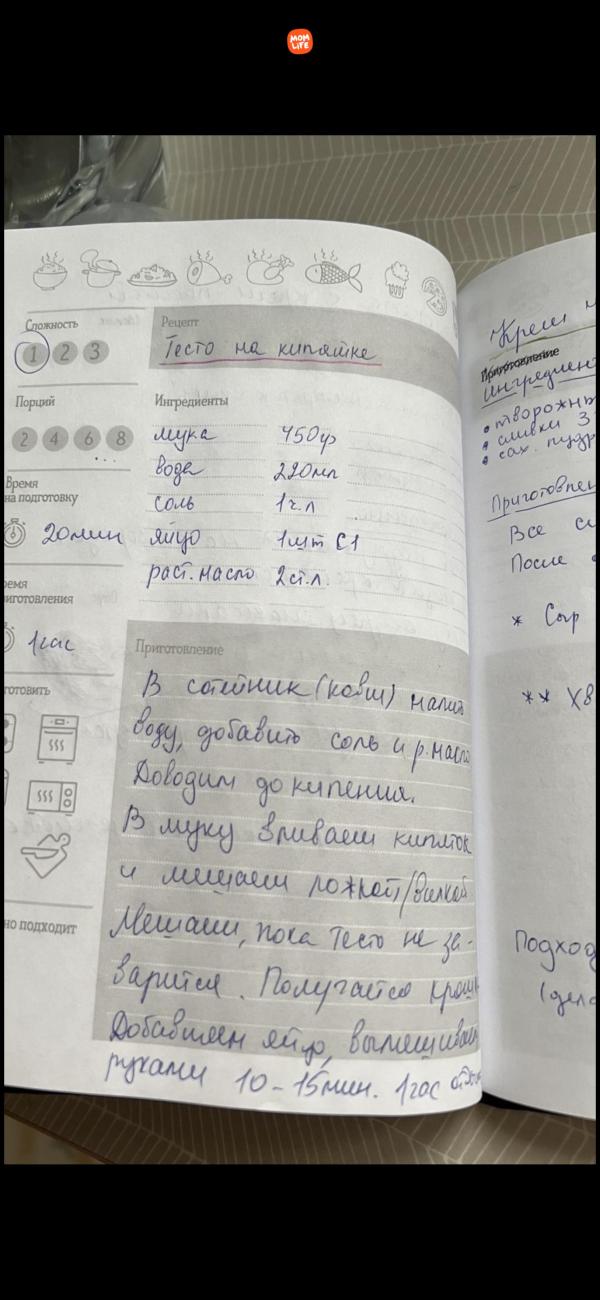 MOM
LIFE
Сложность
1 2 3
Рецепт
Тесто на кипятке
Порций
2 4 6 8
Ингредиенты
мука 450гр
вода 220мл
соль 1ч.л
яйцо 1шт С1
раст. масло 2ст.л.
Время
на подготовку
20мин
ремя
иготовления
1час
готовить
но подходит
Приготовление
В сотейник (ковш) налит
воду, добавить соль и р.масло
Доводим до кипения.
В муку вливаем кипяток
и мешаем ложкой/вилкой
Мешаем, пока тесто не за-
варится. Получается крошк
Добавляем яйцо, вымешиваем
руками 10-15мин. 1час
Крем
Приготовление
ингредиент
• творожны
• сливки 3
• сах. пудр
Приготовлен
Все
После
* Сыр
**
Подход